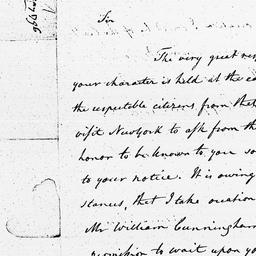 Sir
The very great res
your character is held at the ea
the respectable citizens from that
visit New York to ask from the
honor to be known to you so
to your notice. It is owing
stances, that I take occasion
Mr William Cunningham
permission to wait upon yo